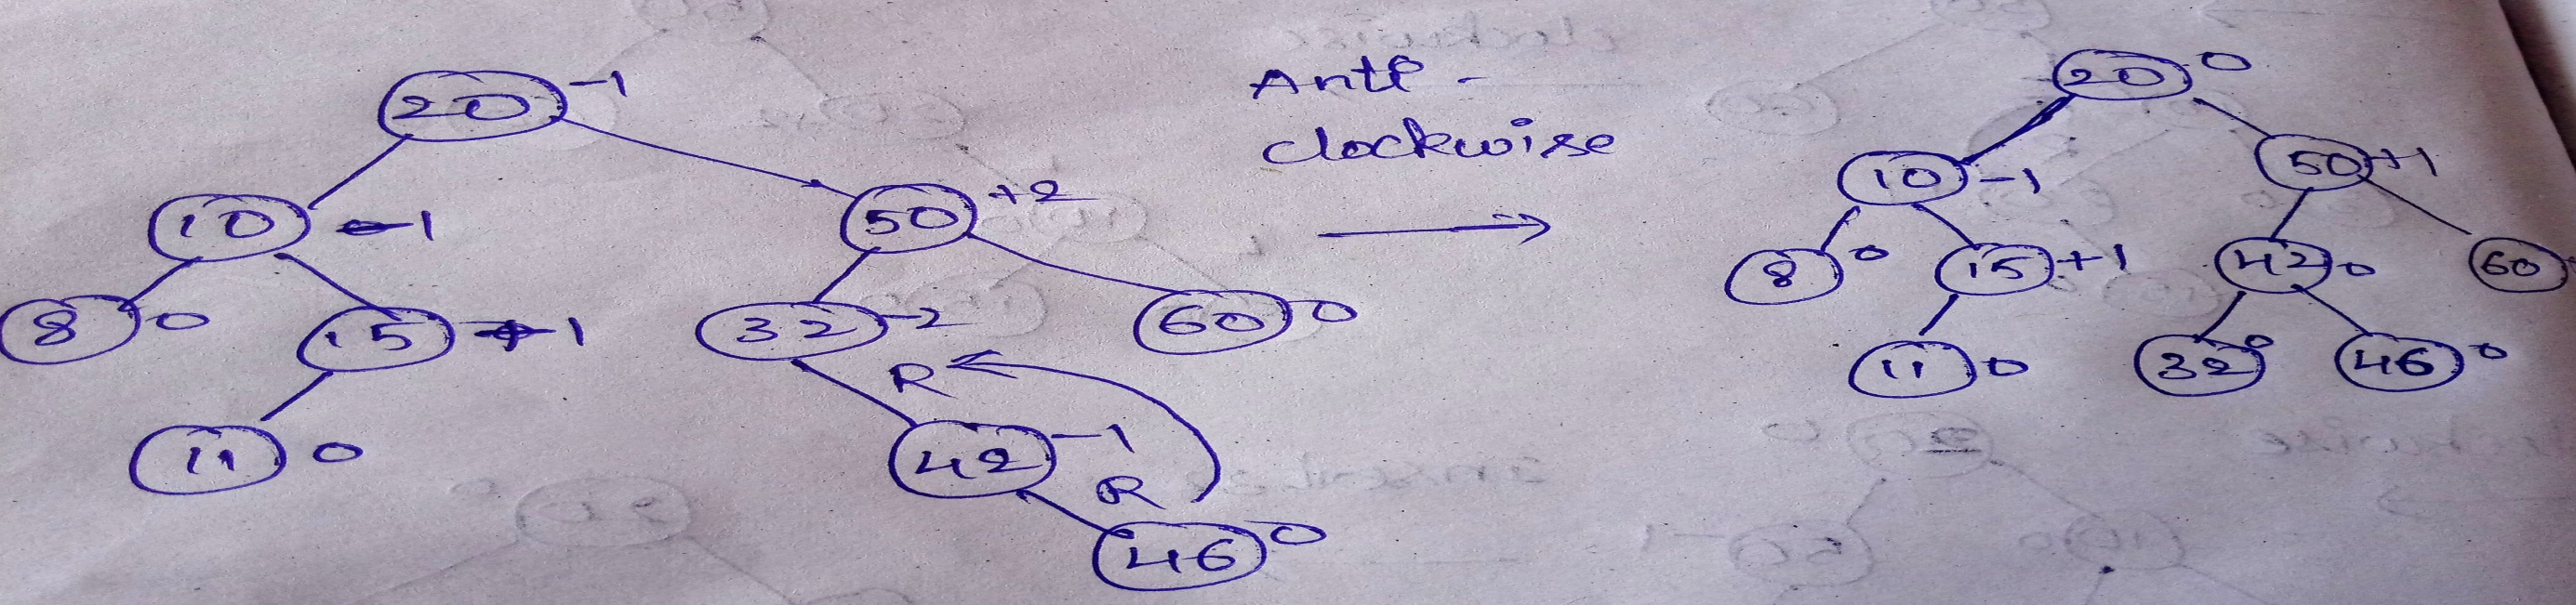 20 -1
10 -1
50 +2
8 0
15 +1
32 -2
60 0
R
11 0
42 -1
R
46 0
Anti-
clockwise
20 0
10 -1
50 +1
8 0
15 +1
42 0
60
11 0
32 0
46 0